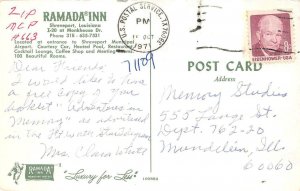 ZIP
RAMADA INN
Shreveport, Louisiana
I-20 at Monkhouse Dr.
Phone 318 635-7531
Located at entrance to Shreveport Municipal
Airport. Courtesy Car, Heated Pool, Restaurant,
Cocktail Lounge, Coffee Shop and Meeting Rooms.
100 Beautiful Rooms.
U.S. POSTAL SERVICE,
PM
OCT
1971
EISENHOWER·USA
71109
POST CARD
Address
Dear Friends,
I would like to have
a free copy of your
booklet "Adventures in
Memory" as advertised
in the
Mrs. Clara White
Memory Studies
555 Lange St.
Dept. 762-20
Mundelein, Ill.
60060
RAMADA
INN
"Luxury for Less"